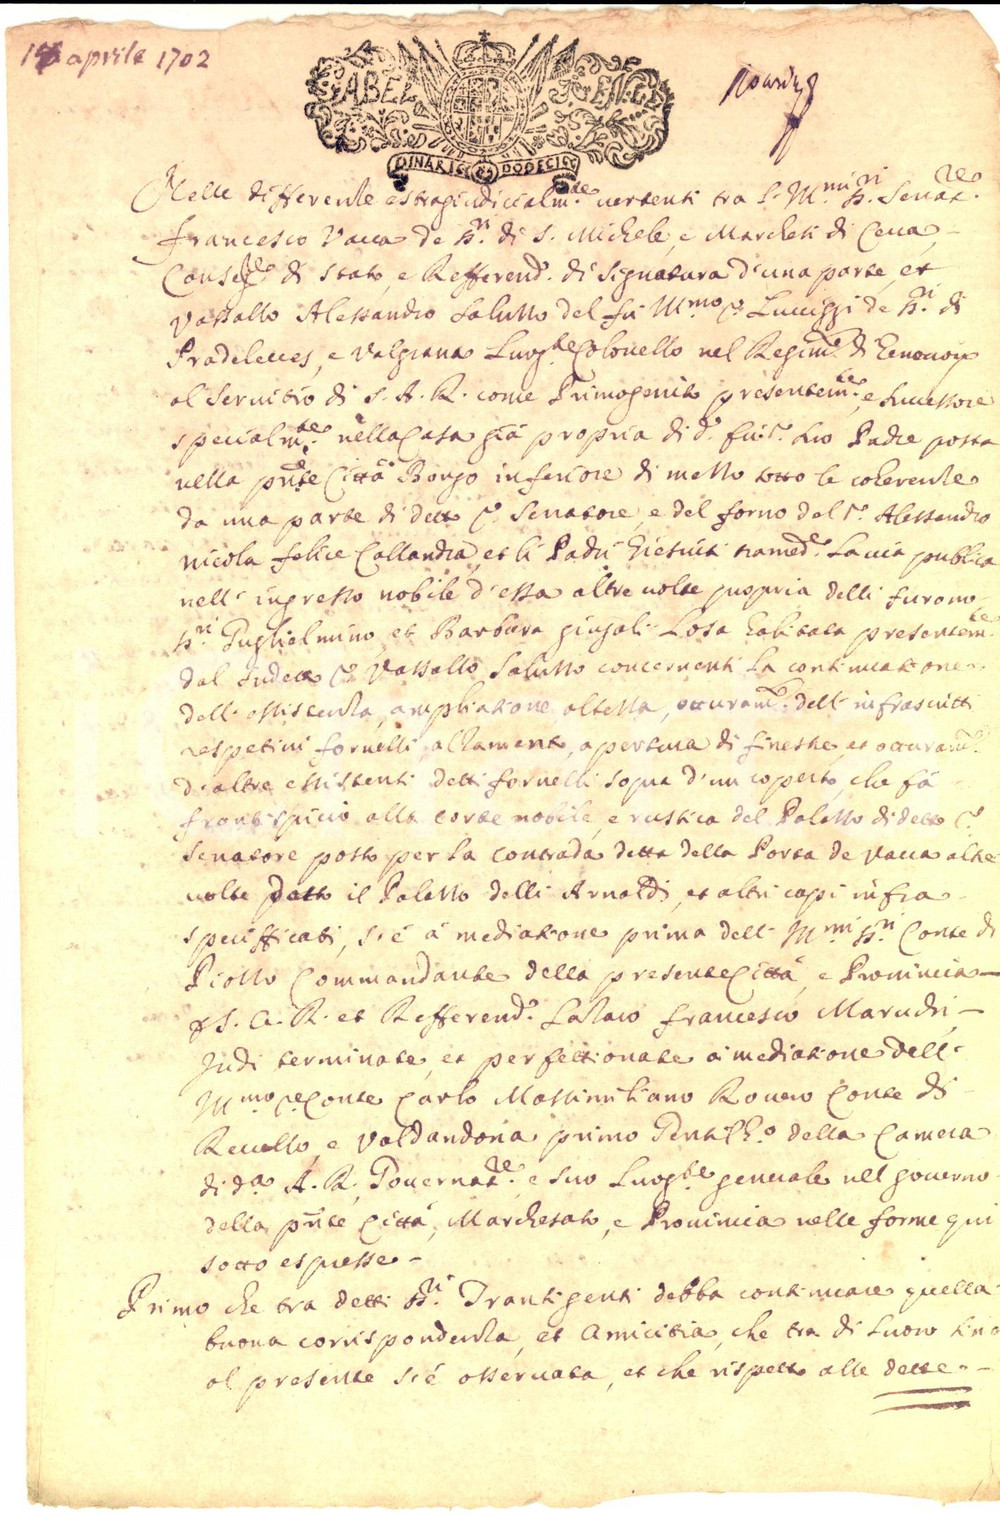 15 aprile 1702
GABEL GENER
DINARI DODECI
Nelle differenze estragiudicialm.te vertenti tra l'Ill.mi SS.ri Senat.re
Francesco Vacca de SS.ri di S. Michele, e Marcheti di Ceva,
Consig.re di stato, e Refferend.o di signatura d'una parte, et
Vassallo Alessandro Saluzzo del fu Ill.mo S.r de SS.ri di
e Valgrana Luog.te Colonello nel Regim.to di
al servitio di S. A. R. come Primogenito presentem.te, e successore
specialm.te nella Casa già propria di d.o fu S.r suo Padre posta
nella pnte Città Borgo inferiore di mezzo sotto le coherenze
da una parte di detto S.r Senatore, e del forno del S.r Alessandro
nicola felice Callandra, et li Padri Giesuiti tramed.e la via publica
nell' ingresso nobile d'essa altre volte propria delli furono
SS.ri Guglielmino, et Barbara giugali Losa habitata presentem.te
dal sudetto S.r Vassallo Saluzzo concernenti la continuatione
dell' essistenza, ampliatione, altezza, otturam.to dell' infrascritti
respetivi fornelli, alzamento, apertura di finestre, et otturam.to
d'altre essistenti detti fornelli sopra d'un coperto, che fà
frontispicio alla corte nobile, e rustica del Palazzo di detto S.r
Senatore posto per la contrada detta della Porta de Vacca altre
volte detto il Palazzo delli Arnaldi, et altri capi infra
specifficati, s'è à mediatione prima dell' Ill.mi SS.ri Conte di
Piozzo Commandante della presente Città, e Provincia
p S. A. R. et Refferend.o Francesco Marucchi,
Indi terminate, et perfettionate à mediatione dell'
Ill.mo S.r Conte Carlo Massimiliano Rovero Conte di
Revello, e Valdandona primo Gentilh.o della Camera
di d.a A. R. Governat.re, e suo Luog.te generale nel governo
della pnte Città, Marchesato, e Provincia nelle forme qui
sotto espresse
Primo che tra detti SS.ri Transigenti debba continuare quella
buona corrispondenza, et amicitia, che tra di Loro sino
al presente s'è osservata, et che rispetto alle dette